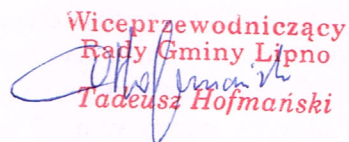 Wiceprzewodniczący
Rady Gminy Lipno
Tadeusz Hofmański